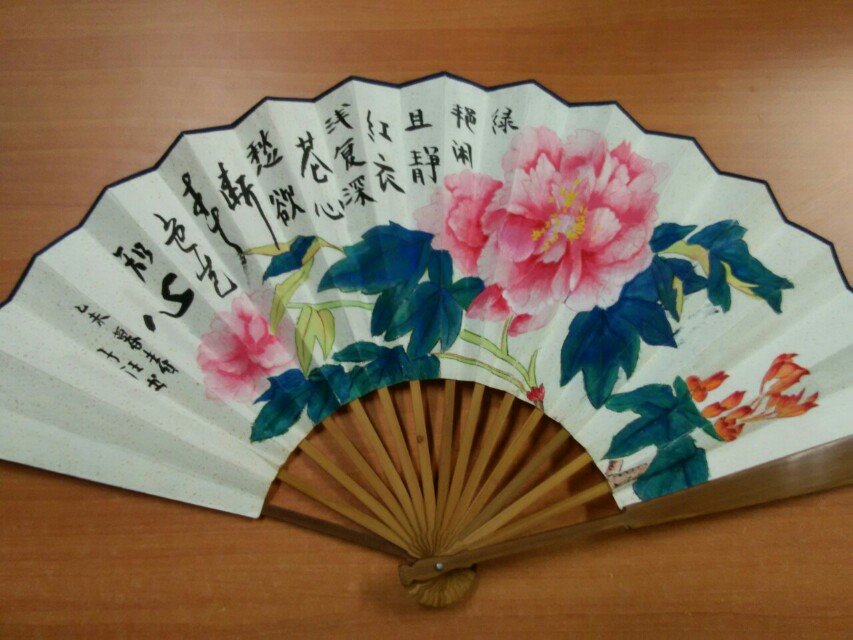 绿
艳闲
且静
红衣
浅复深
花心
愁欲
断
春
色岂
知心
乙未
书